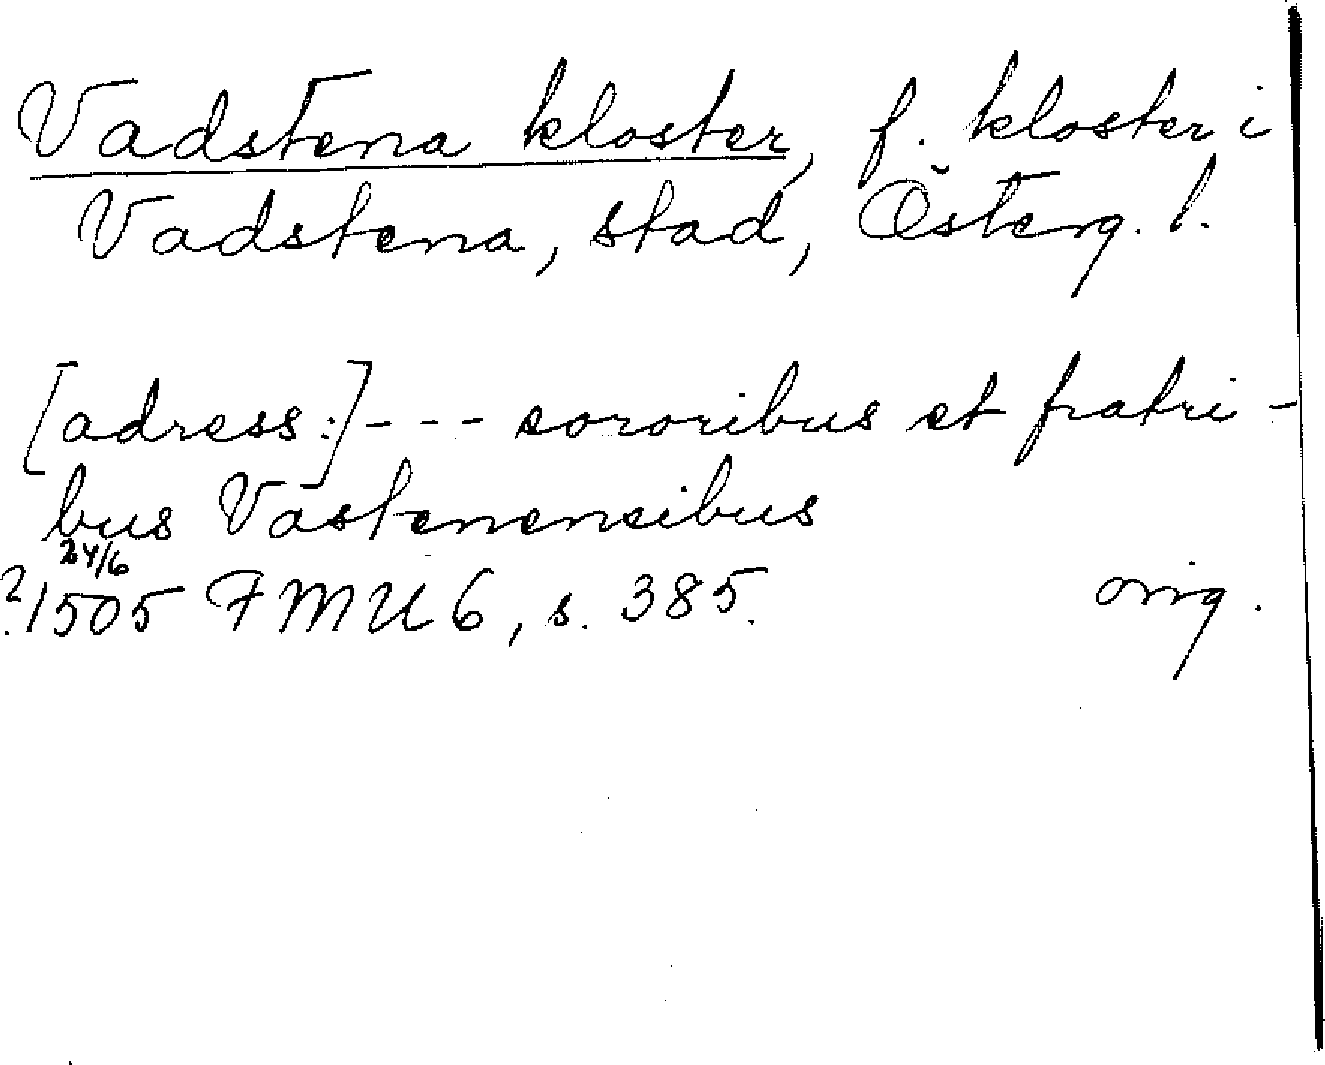 Vadstena kloster, f. kloster i
Vadstena, stad, Österg. l.
[adress:] - - - sororibus et fratri-
bus Vastenensibus
24/6
?1505 FMU 6, s. 385. orig.